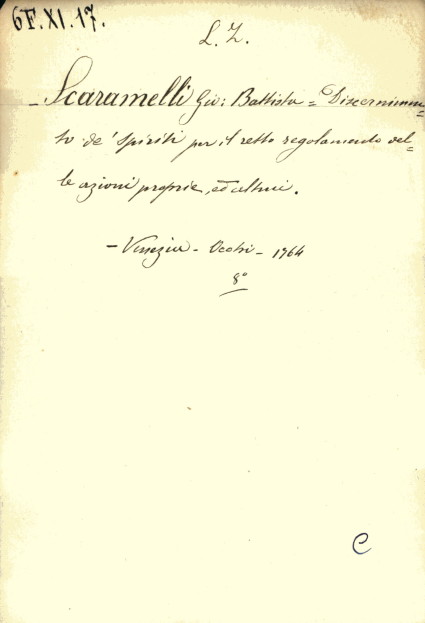 6F.XI.17.
L. Z.
- Scaramelli Gio: Battista = Discernimen=
to de' Spiriti per il retto regolamento del=
le azioni proprie, ed altrui.
- Venezia - Occhi - 1764
8°
C